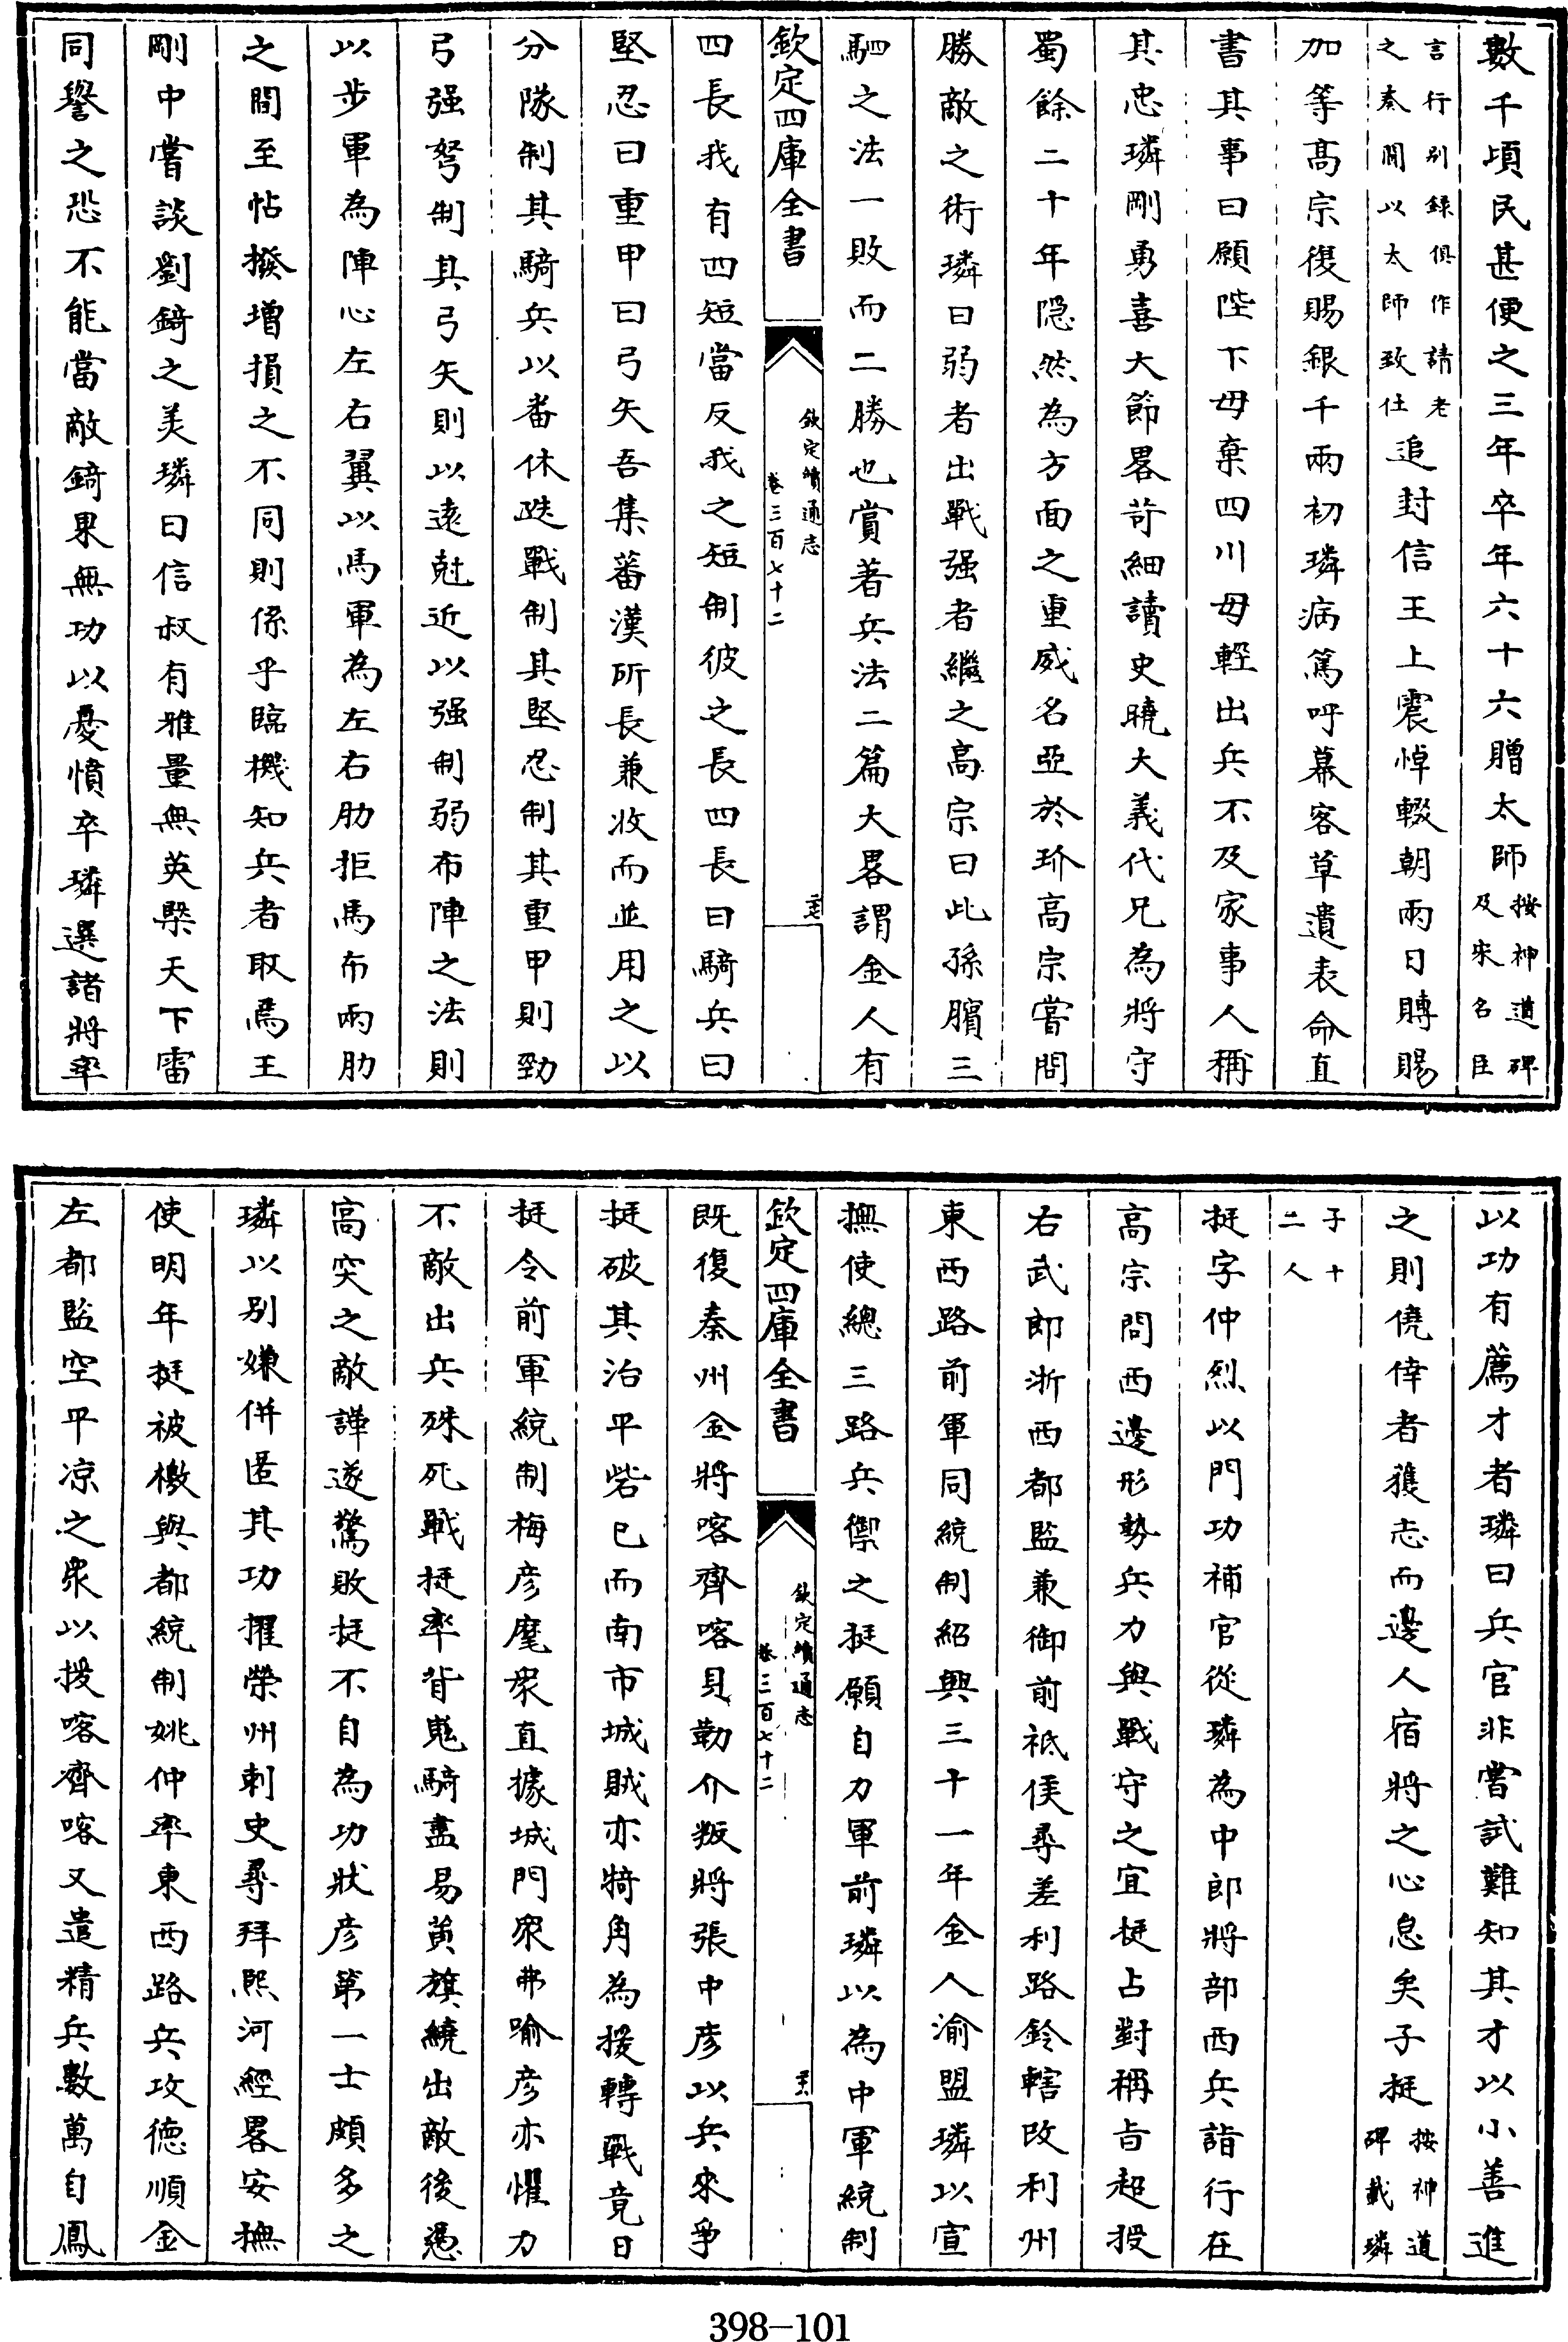 數千頃民甚便之三年卒年六十六贈太師按神道碑及宋名臣
言行别錄俱作請老之奏聞以太師致仕追封信王上震悼輟朝兩日賻賜
加等高宗復賜銀千兩初璘病篤呼幕客草遺表命直
書其事曰願陛下毋棄四川毋輕出兵不及家事人稱
其忠璘剛勇喜大節畧苛細讀史曉大義代兄為將守
蜀餘二十年隱然為方面之重威名亞於玠高宗嘗問
勝敵之術璘曰弱者出戰强者繼之高宗曰此孫臏三
駟之法一敗而二勝也嘗著兵法二篇大畧謂金人有
欽定四庫全書
欽定續通志
卷三百七十二
四長我有四短當反我之短制彼之長四長曰騎兵曰
堅忍曰重甲曰弓矢吾集蕃漢所長兼收而並用之以
分隊制其騎兵以番休迭戰制其堅忍制其重甲則勁
弓强弩制其弓矢則以遠尅近以强制弱布陣之法則
以步軍為陣心左右翼以馬軍為左右肋拒馬布兩肋
之間至帖撥增損之不同則係乎臨機知兵者取焉王
剛中嘗談劉錡之美璘曰信叔有雅量無英槩天下雷
同譽之恐不能當敵錡果無功以憂憤卒璘選諸將率
以功有薦才者璘曰兵官非嘗試難知其才以小善進
之則僥倖者獲志而邊人宿將之心怠矣子挺按神道碑載璘
子十二人
挺字仲烈以門功補官從璘為中郎將部西兵詣行在
高宗問西邊形勢兵力與戰守之宜挺占對稱旨超授
右武郎浙西都監兼御前祗俟尋差利路鈐轄改利州
東西路前軍同統制紹興三十一年金人渝盟璘以宣
撫使總三路兵禦之挺願自力軍前璘以為中軍統制
欽定四庫全書
欽定續通志
卷三百七十二
既復秦州金將喀齊喀貝勒介叛將張中彦以兵來爭
挺破其治平砦已而南市城賊亦犄角為援轉戰竟日
挺令前軍統制梅彦麾衆直據城門衆弗喻彦亦懼力
不敵出兵殊死戰挺率背嵬騎盡易黄旗繞出敵後憑
高突之敵譁遂驚敗挺不自為功狀彦第一士頗多之
璘以别嫌併匿其功擢榮州刺史尋拜熙河經畧安撫
使明年挺被檄與都統制姚仲率東西路兵攻德順金
左都監空平凉之衆以援喀齊喀又遣精兵數萬自鳳
398-101